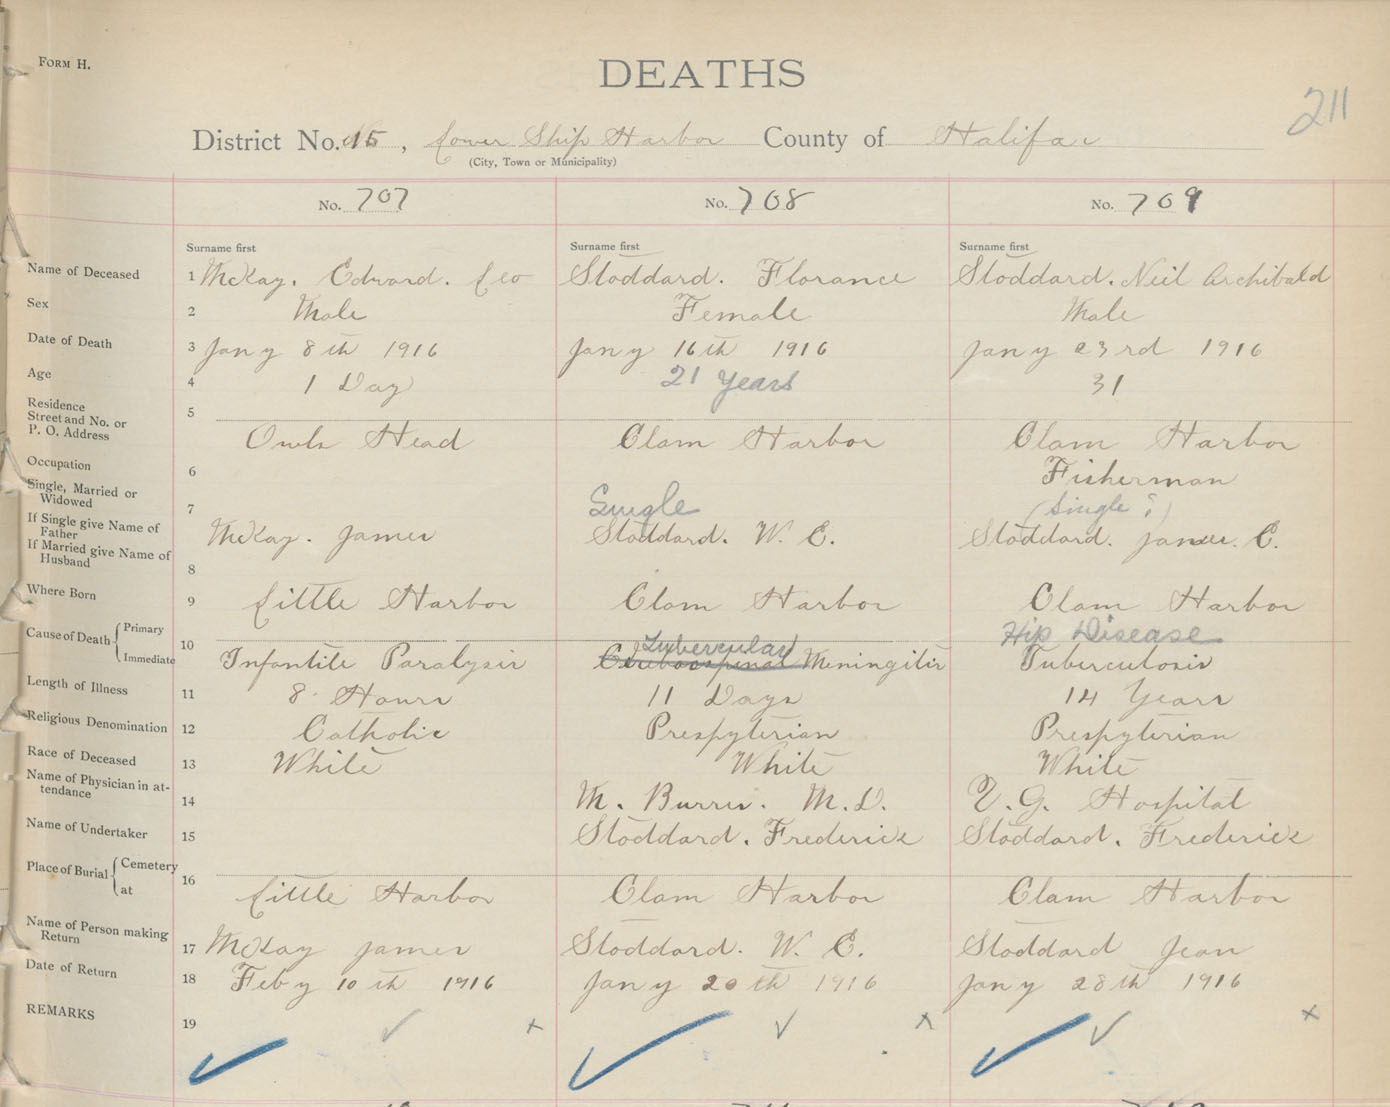 FORM H.
DEATHS
211
District No. 15, Lower Ship Harbor County of Halifax
(City, Town or Municipality)
No. 707 No. 708 No. 709
Surname first Surname first Surname first
Name of Deceased 1 McKay. Edward. Leo Stoddard. Florance Stoddard. Neil Archibald
Sex 2 Male Female Male
Date of Death 3 Jany 8th 1916 Jany 16th 1916 Jany 23rd 1916
Age 4 1 Day 21 Years 31
Residence Street and No. or P. O. Address 5 Owls Head Clam Harbor Clam Harbor
Occupation 6 Fisherman
Single, Married or Widowed 7 Single (Single ?)
If Single give Name of Father McKay. James Stoddard. W. E. Stoddard. James. C.
If Married give Name of Husband 8
Where Born 9 Little Harbor Clam Harbor Clam Harbor
Cause of Death Primary 10 Tubercular Hip Disease
Immediate Infantile Paralysis Cerebrospinal Meningitis Tuberculosis
Length of Illness 11 8 Hours 11 Days 14 Years
Religious Denomination 12 Catholic Presbyterian Presbyterian
Race of Deceased 13 White White White
Name of Physician in attendance 14 M. Burris. M.D. V. G. Hospital
Name of Undertaker 15 Stoddard. Frederick Stoddard. Frederick
Place of Burial Cemetery at 16 Little Harbor Clam Harbor Clam Harbor
Name of Person making Return 17 McKay James Stoddard. W. E. Stoddard Jean
Date of Return 18 Feby 10th 1916 Jany 20th 1916 Jany 28th 1916
REMARKS 19